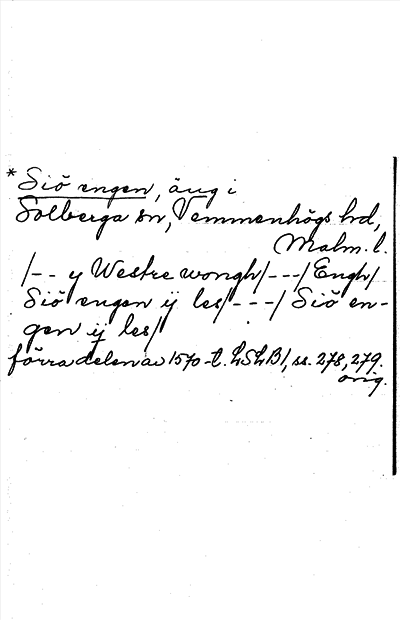 * Siö engen, äng i
Solberga sn, Vemmenhögs hrd,
Malm. l.
/-- y Westre wongh/---/Engh/
Siö engen ij les/---/ Siö en-
gen ij les/
förra delen av 1570-t. LSLB1, ss. 278, 279.
orig.